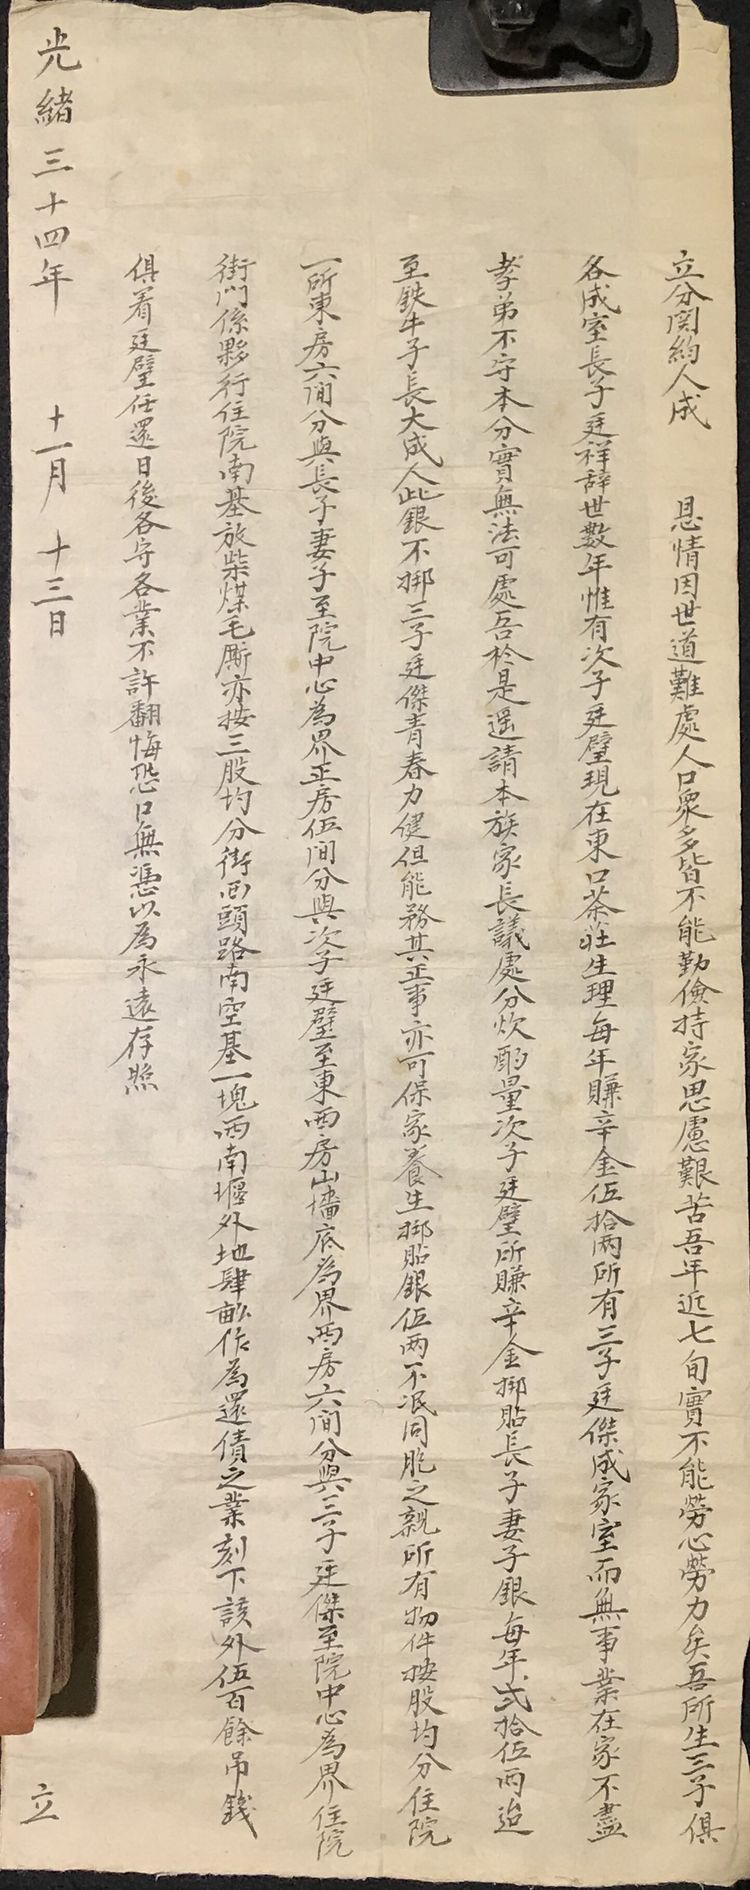 立分関約人成　恳情因世道難處人口衆多皆不能勤儉持家思慮艱苦吾年近七旬實不能勞心勞力矣吾所生三子俱
各成室長子廷祥辞世數年惟有次子廷璧現在東口茶莊生理每年賺辛金伍拾两所有三子廷傑成家室而無事業在家不盡
孝弟不守本分實無法可處吾於是邀請本族家長議處分炊酌量次子廷璧所賺辛金挪貼長子妻子銀每年弍拾伍两迨
至鉄牛子長大成人此銀不挪三子廷傑青春力健但能務其正事亦可保家養生挪貼銀伍两不泯同胞之親所有物件按股均分住院
一所東房六间分與長子妻子至院中心為界正房伍间分與次子廷璧至東西房山墻底為界西房六间分與三子廷傑至院中心為界住院
街门係夥行住院南基放柴煤毛厮亦按三股均分街西頭路南空基一塊西南堰外地肆畝作為還債之業刻下該外伍百餘吊錢
俱着廷璧任還日後各守各業不許翻悔恐口無憑以為永遠存照
光緒三十四年　十一月　十三日　立